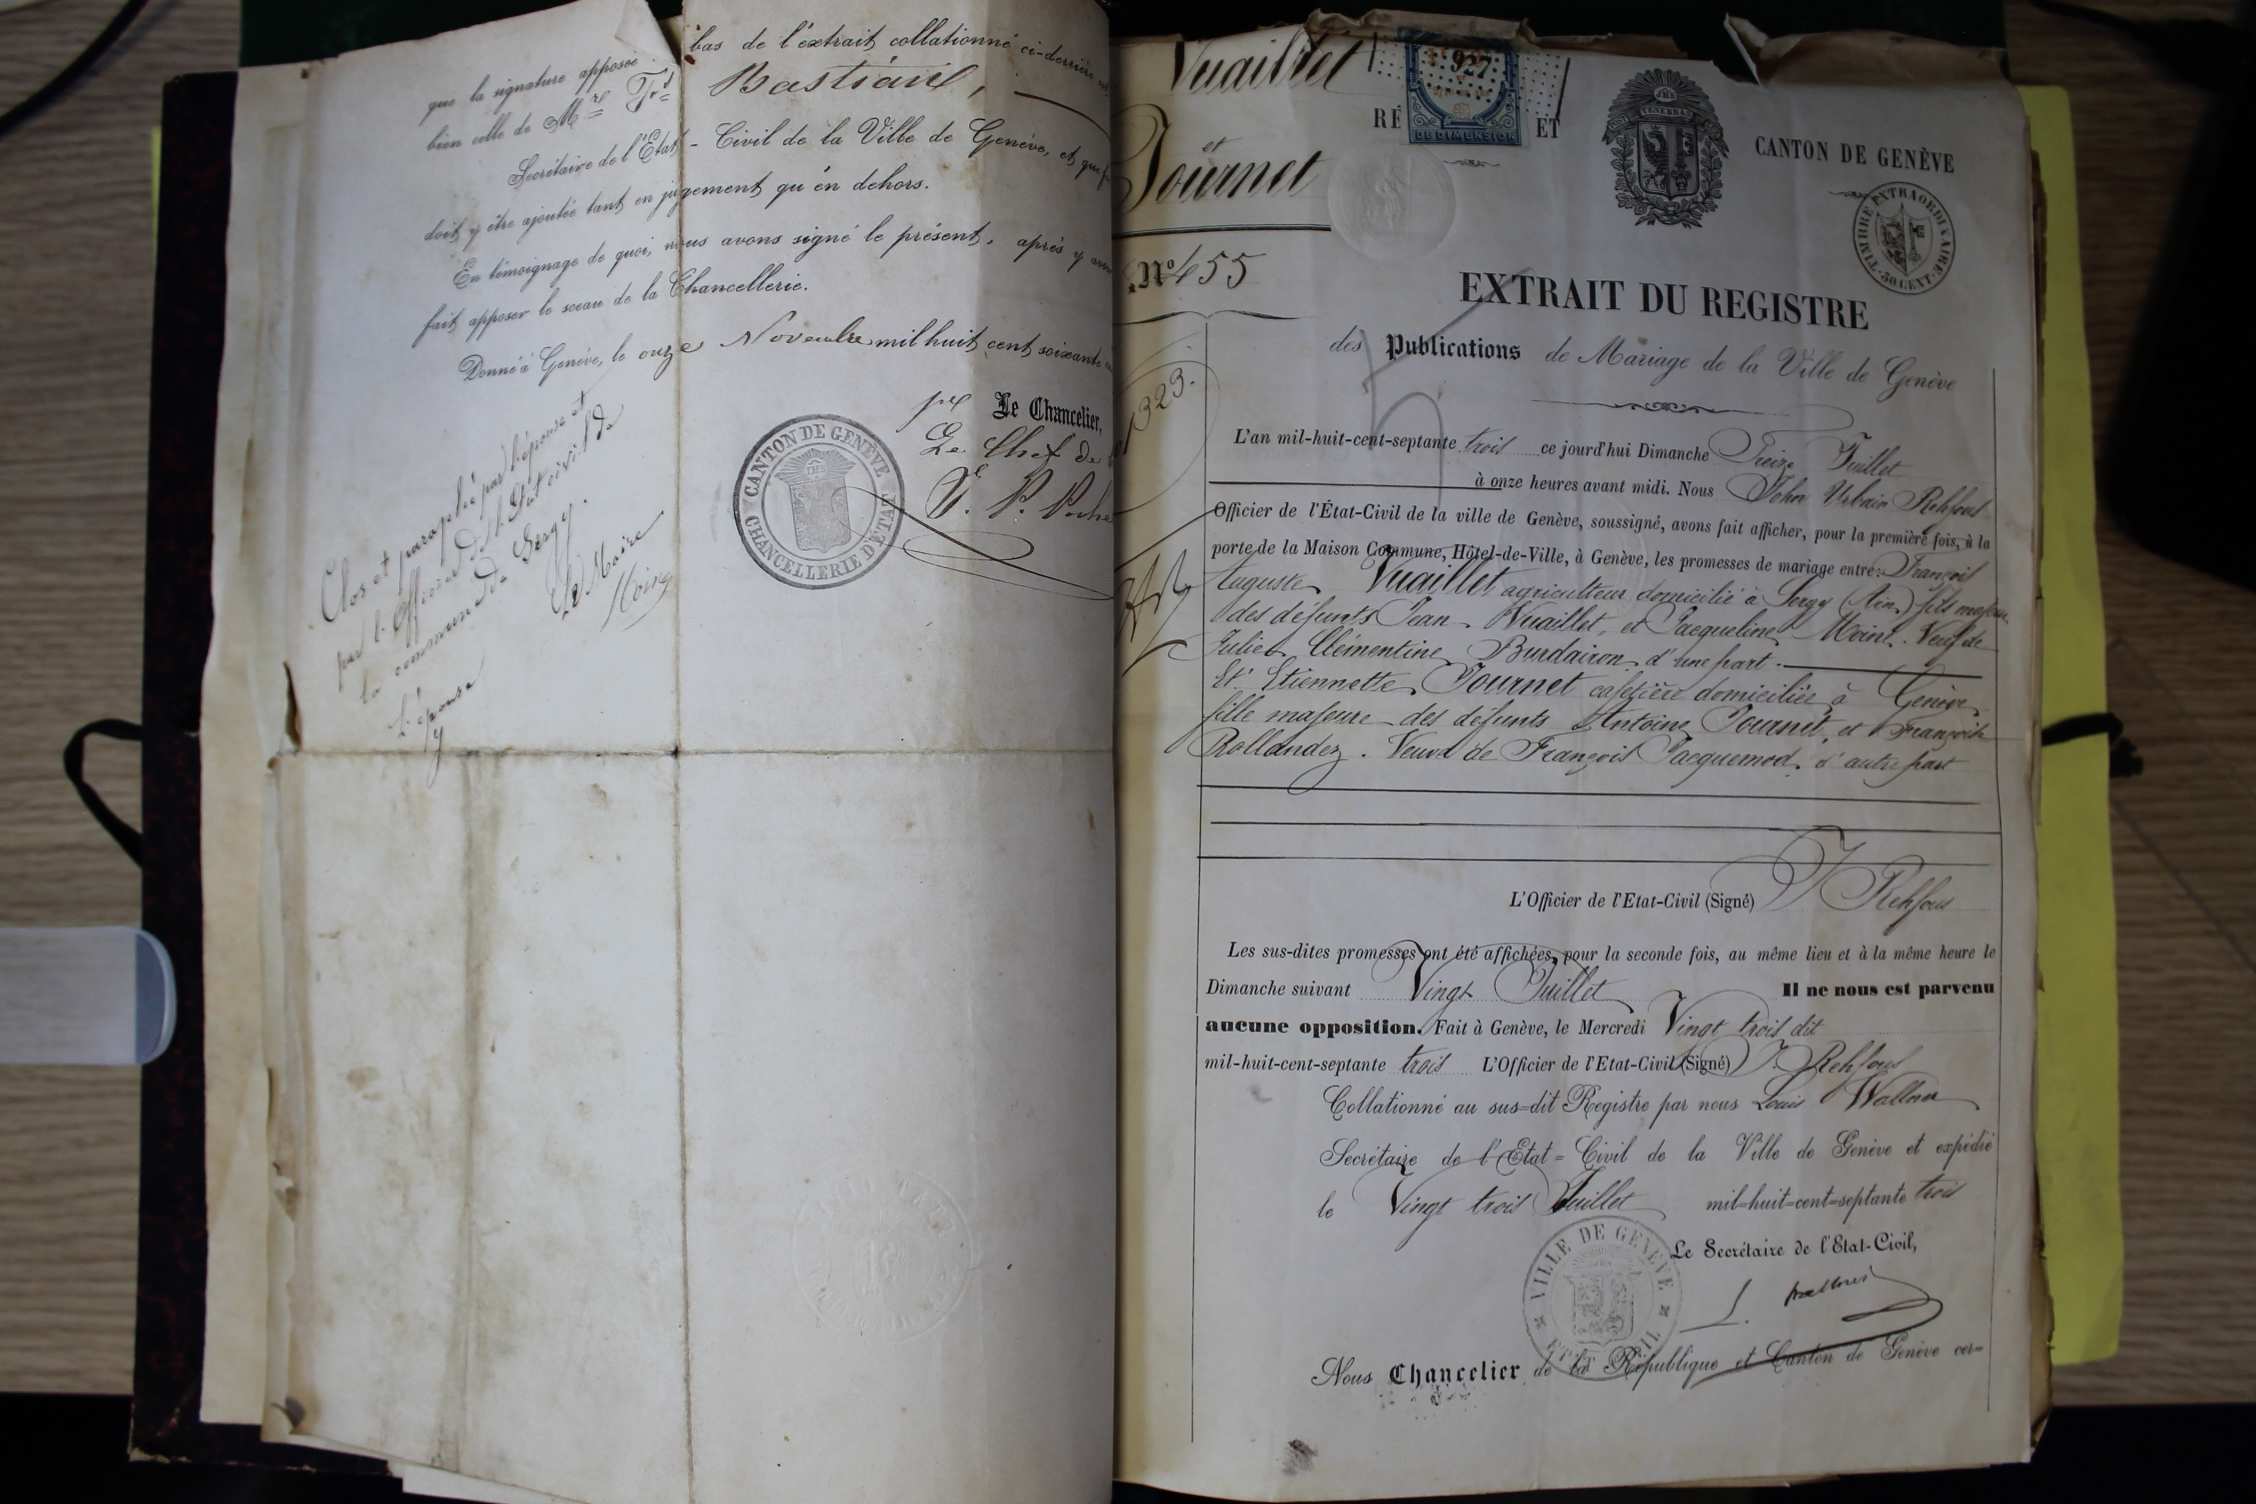 que la signature apposée bas de l'extrait collationné ci-derrière
bien celle de Mre Frd Bastian,
Secrétaire de l'État-Civil de la Ville de Genève, et que
doit y être ajoutée tant en jugement qu'en dehors.
En témoignage de quoi, nous avons signé le présent, après y
fait apposer le sceau de la Chancellerie.
Donné à Genève, le onze Novembre mil huit cent soixante
pr Le Chancelier,
Le Chef de
CANTON DE GENÈVE
CHANCELLERIE D'ÉTAT
Clos et paraphé par l'épouse et
par l'Officier de l'État civil de
la commune de Sergy.
Le Maire
Moine
L'épouse
Vuaillet
et
Tournet
No 455
1323.
927
DE DIMENSION
RÉ ET CANTON DE GENÈVE
TIMBRE EXTRAORDINAIRE 50 CENT.
EXTRAIT DU REGISTRE
des Publications de Mariage de la Ville de Genève
L'an mil-huit-cent-septante trois ce jourd'hui Dimanche Treize Juillet
à onze heures avant midi. Nous John Urbain Rehfous
Officier de l'État-Civil de la ville de Genève, soussigné, avons fait afficher, pour la première fois, à la
porte de la Maison Commune, Hôtel-de-Ville, à Genève, les promesses de mariage entre: François
Auguste Vuaillet agriculteur domicilié à Sergy (Ain) fils majeur
des défunts Jean Vuaillet, et Jacqueline Moine. Veuf de
Julie Clémentine Burdairon d'une part.
Et Etiennette Tournet cafetière domiciliée à Genève
fille majeure des défunts Antoine Tournet, et Françoise
Rollandez. Veuve de François Jacquemod. d'autre part
L'Officier de l'Etat-Civil (Signé) J Rehfous
Les sus-dites promesses ont été affichées, pour la seconde fois, au même lieu et à la même heure le
Dimanche suivant Vingt Juillet Il ne nous est parvenu
aucune opposition. Fait à Genève, le Mercredi Vingt trois dit
mil-huit-cent-septante trois L'Officier de l'Etat-Civil (Signé) J. Rehfous
Collationné au sus=dit Registre par nous Louis Wallner
Secrétaire de l'Etat=Civil de la Ville de Genève et expédié
le Vingt trois Juillet mil=huit=cent=septante trois
Le Secrétaire de l'Etat-Civil,
VILLE DE GENÈVE
ETAT CIVIL
L. Wallner
Nous Chancelier de la République et Canton de Genève cer=